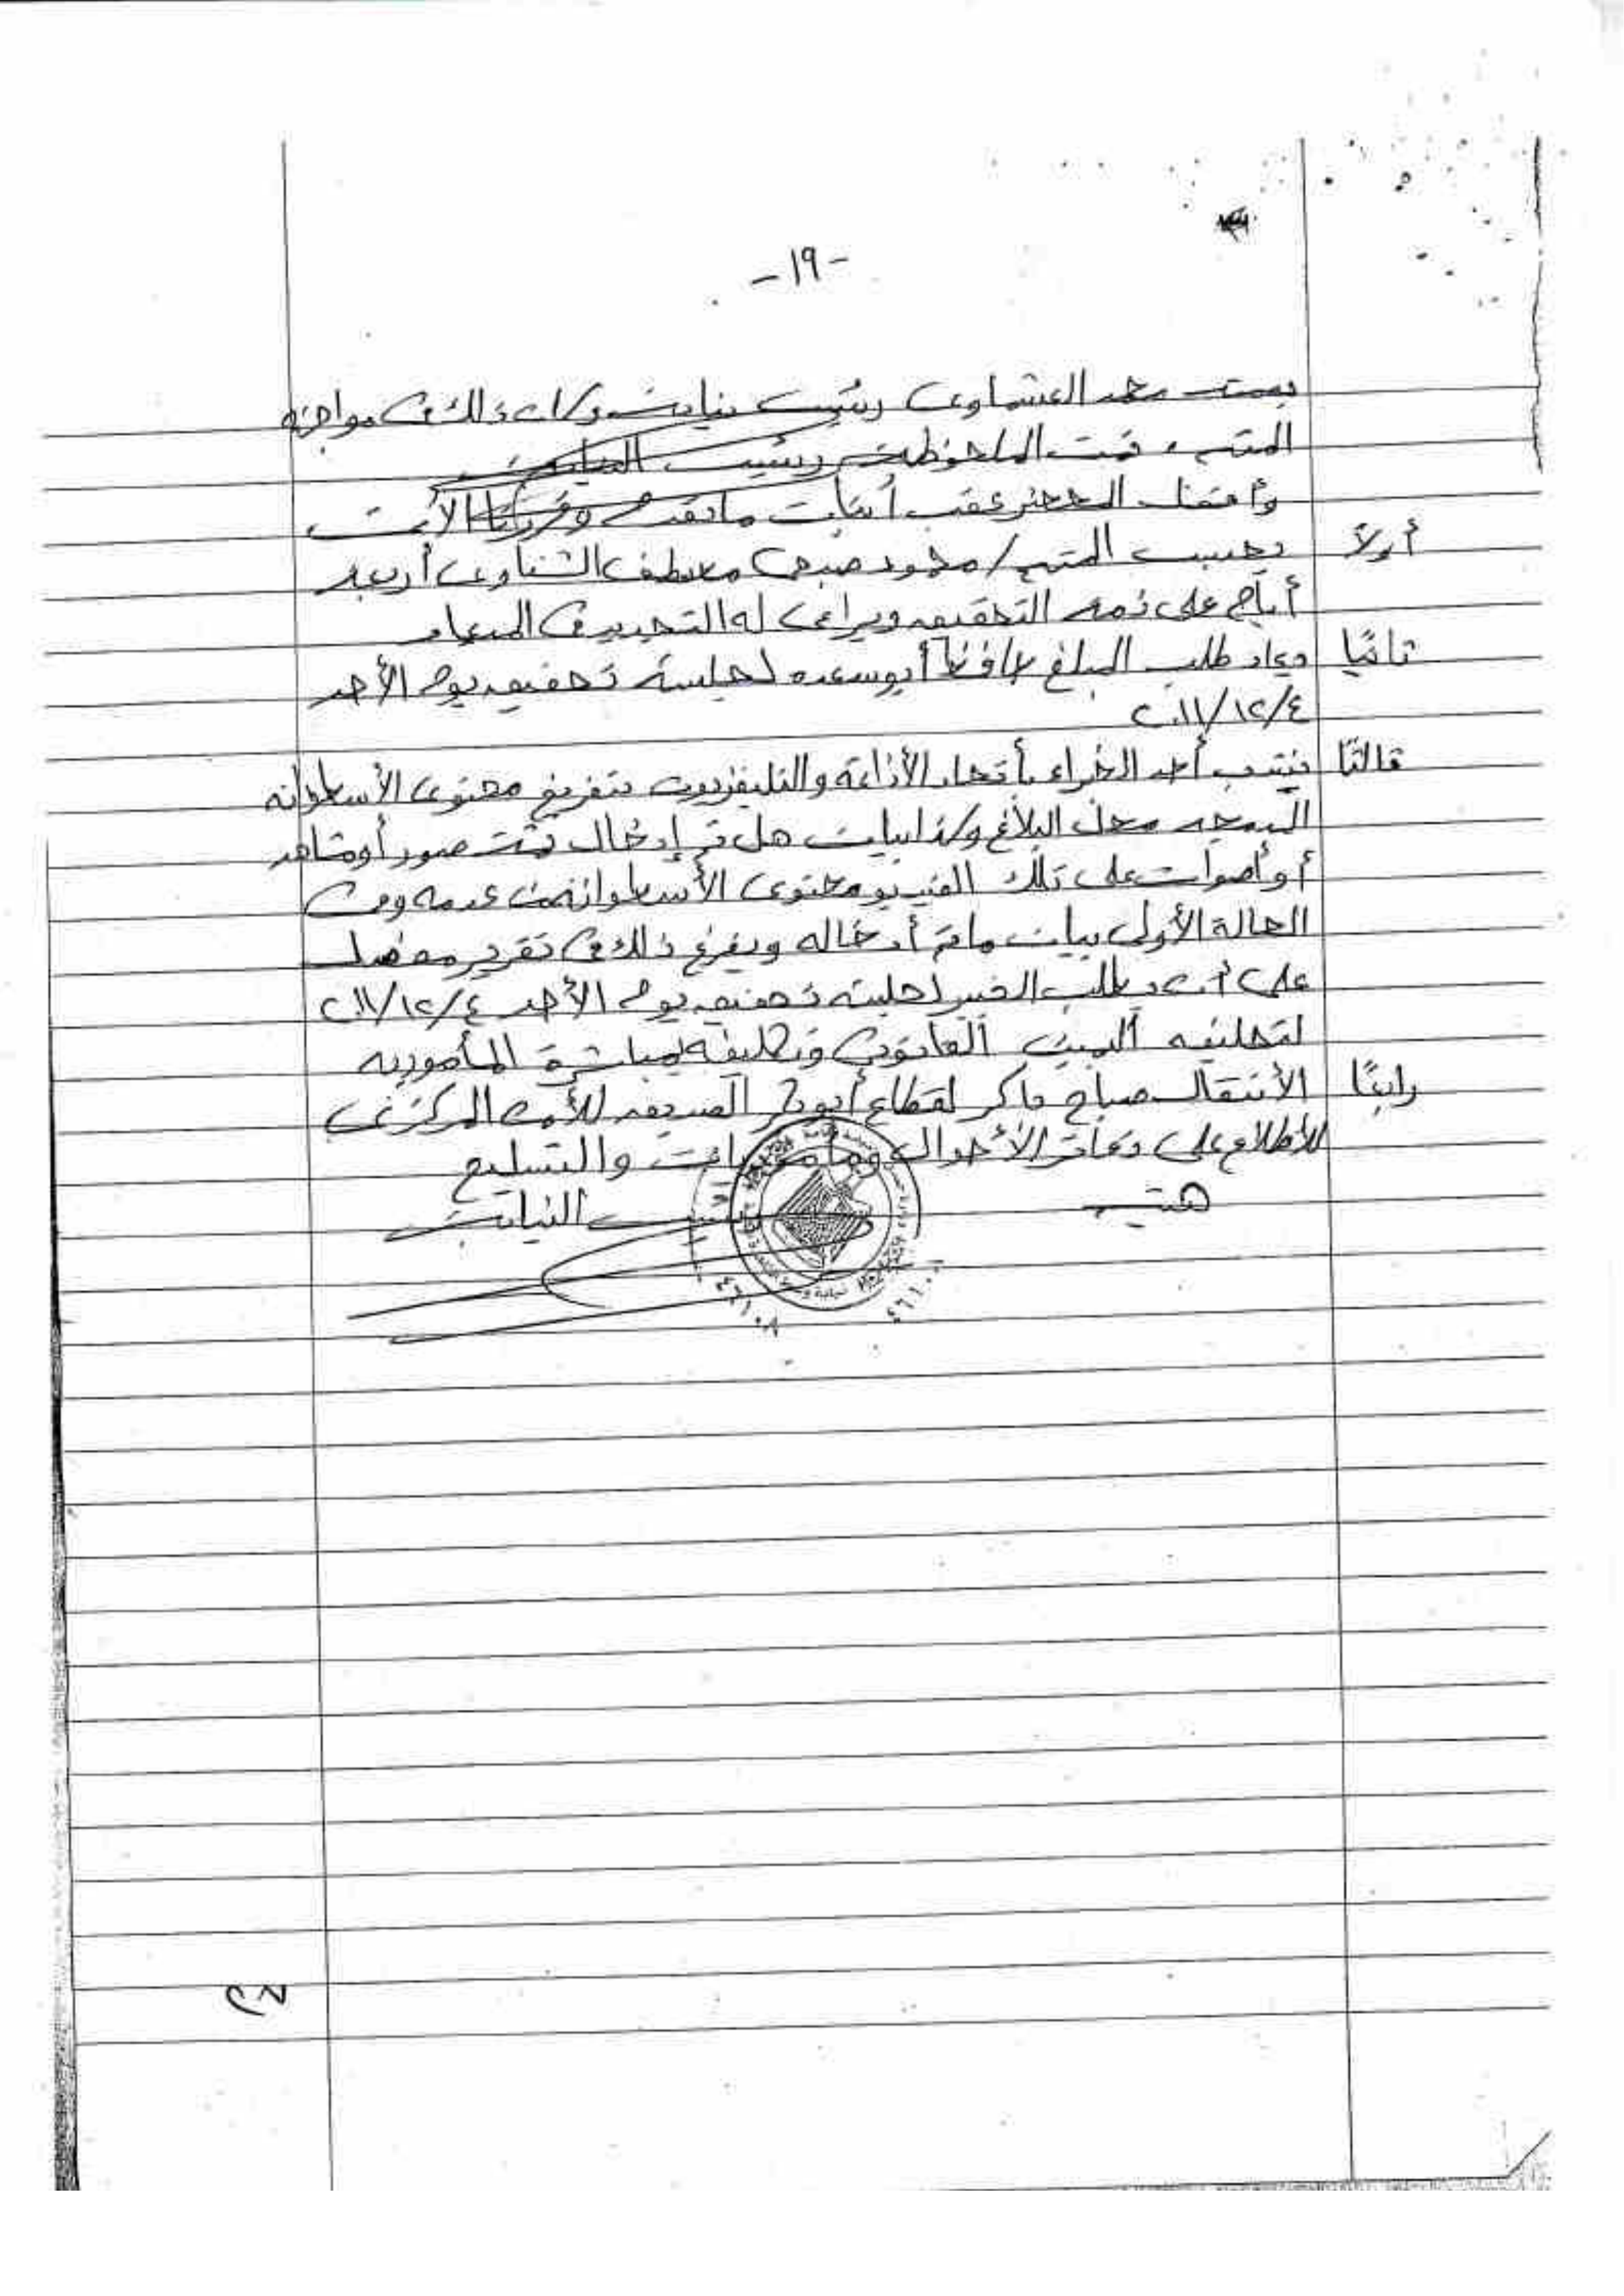 - ١٩ -
محمد العشماوى رئيس نيابة وكان ذلك فى مواجهة
المتهم ، تمت الملحوظة رئيس النيابة
وأقفل المحضر عقب أثبات ما تقدم وقررنا الأتى
أولاً يحبس المتهم / محمود صبحى الشناوى أربعة
أيام على ذمه التحقيق ويراعى له التجديد فى الميعاد
ثانيًا ويعاد طلب المبلغ حافظ أبو سعده لجلسة تحقيق يوم الأحد
٢٠١١/١٢/٤
ثالثًا ينتدب أحد الخبراء بأتحاد الأذاعة والتليفزيون بتفريغ محتوى الأسطوانه
المدمجه محل البلاغ وكذا بيان هل تم إدخال ثمت صور أو مشاهد
أو أصوات على تلك الفيديو محتوى الأسطوانة من عدمه وفى
الحالة الأولى بيان ما تم أدخاله ويفرغ ذلك فى تقرير مفصل
على أن يطلب الخبير لجلسة تحقيق يوم الأحد ٢٠١١/١٢/٤
لتحليفه اليمين القانونى وتكليفه بمباشرة المأموريه
رابعًا الأنتقال صباح باكر لقطاع أبو بكر الصديق للأمن المركزى
للأطلاع على دفاتر الأحوال ومأموريات والتسليح
رئيس النيابة